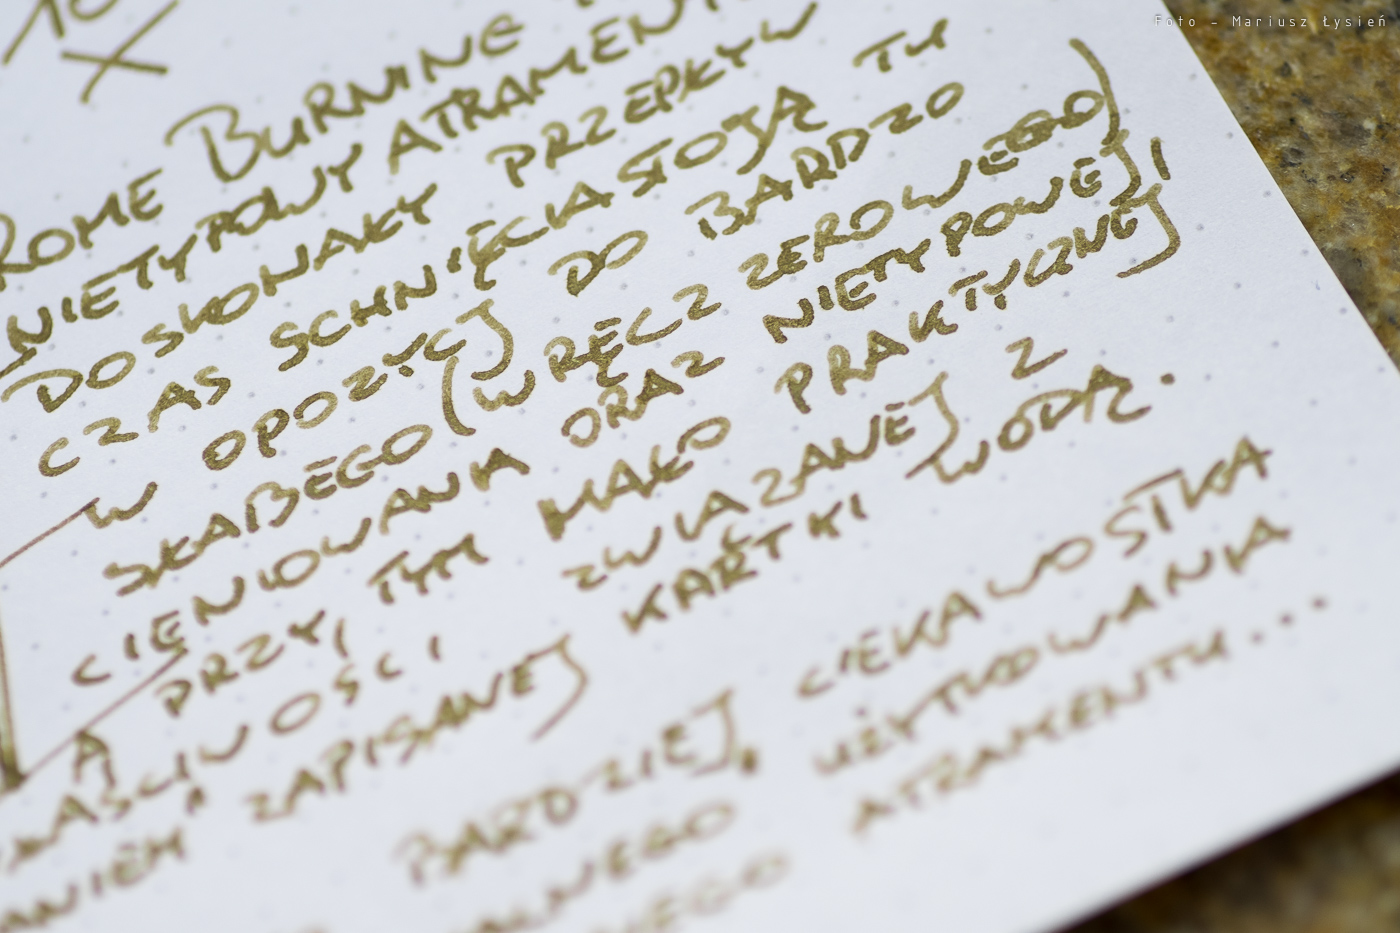 Foto - Mariusz Łysień
10
X
ROME BURNING
NIETYPOWY ATRAMENT
DOSKONAŁY PRZEPŁYW
CZAS SCHNIĘCIA STOJĄ TU
W OPOZYCJ DO BARDZO
SŁABEGO (WRĘCZ ZEROWEGO)
CIENIOWANIA ORAZ NIETYPOWEJ,
PRZY TYM MAŁO PRAKTYCZNEJ
WŁAŚCIWOŚCI ZWIĄZANEJ Z
ZAPISANEJ KARTKI WODĄ.
A BARDZIEJ CIEKAWOSTKA
UŻYTKOWANIA
ATRAMENTU...